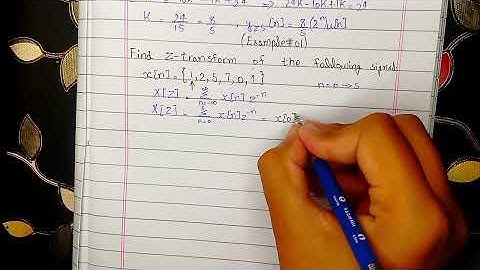 K = 24/15 = 8/5 , y_{zs}[n] = 8/5 (2^n) u[n]
(Example #01)
Find Z-transform of the following signal:
x[n] = {1, 2, 5, 7, 0, 1} n=0→5
↑
X[Z] = ∞Σn=-∞ x[n] z^{-n}
X[Z] = 5Σn=0 x[n] z^{-n} = x[0]